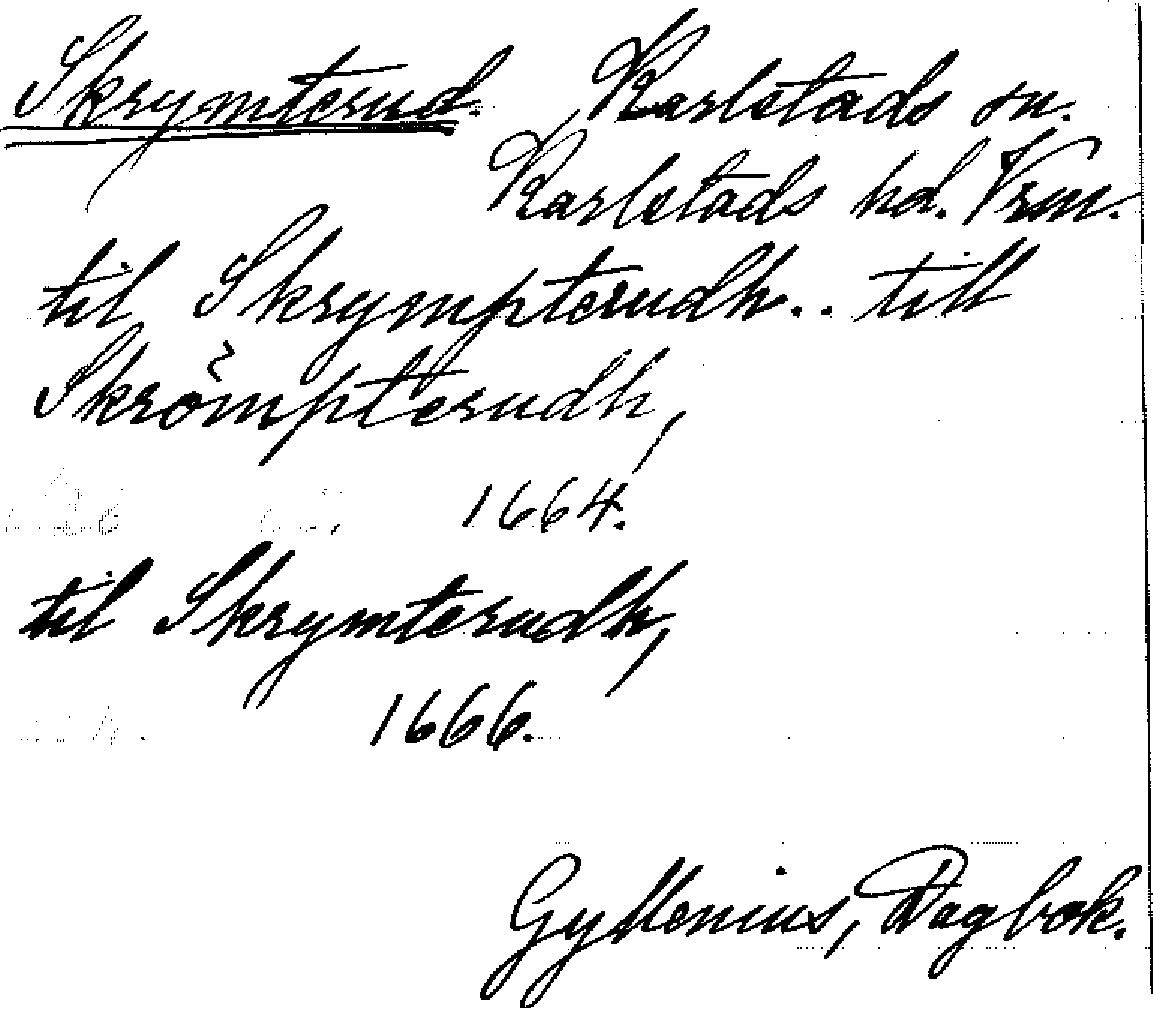 Skrymterud. Karlstads sn.
Karlstads hd. Vrm.
til Skrympterudh.. till
Skrömpterudh,
1664.
til Skrymterudh,
1666.
Gyllenius, Dagbok.